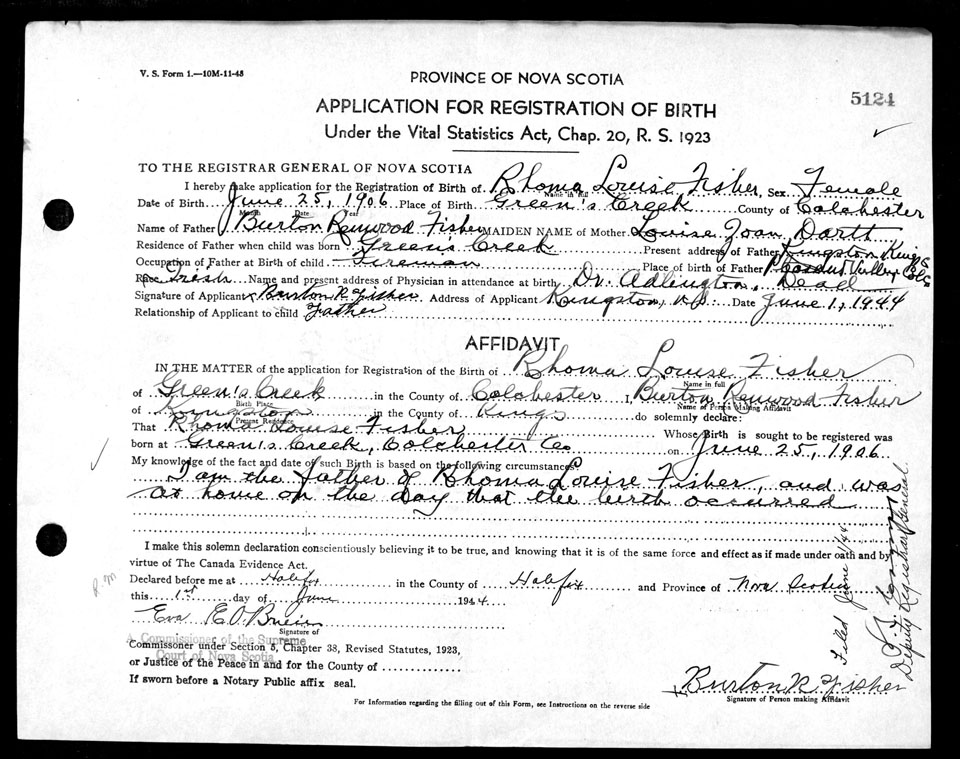 V. S. Form 1.—10M-11-43
PROVINCE OF NOVA SCOTIA
5124
APPLICATION FOR REGISTRATION OF BIRTH
Under the Vital Statistics Act, Chap. 20, R. S. 1923
TO THE REGISTRAR GENERAL OF NOVA SCOTIA
I hereby make application for the Registration of Birth of Rhoma Louise Fisher, Sex Female
Name in full
Date of Birth June 25, 1906 Place of Birth Green's Creek County of Colchester
Month Date Year
Name of Father Burton Renwood Fisher MAIDEN NAME of Mother Louise Joan Darth
Residence of Father when child was born Greens Creek Present address of Father Kingston Kings
Occupation of Father at Birth of child Fireman Place of Birth of Father Valley Col Co
Race Irish Name and present address of Physician in attendance at birth Dr. Adlington, Dead
Signature of Applicant Burton R Fisher Address of Applicant Kingston, N.S. Date June 1, 1944
Relationship of Applicant to child Father
AFFIDAVIT
IN THE MATTER of the application for Registration of the Birth of Rhoma Louise Fisher
Name in full
of Green's Creek in the County of Colchester I, Burton Renwood Fisher
Birth Place
Name of Person Making Affidavit
of Kingston in the County of Kings do solemnly declare:
Present Residence
That Rhoma Louise Fisher Whose Birth is sought to be registered was
born at Green's Creek, Colchester Co on June 25, 1906
My knowledge of the fact and date of such Birth is based on the following circumstances:
I am the father of Rhoma Louise Fisher, and was
at home on the day that the birth occurred
I make this solemn declaration conscientiously believing it to be true, and knowing that it is of the same force and effect as if made under oath and by
virtue of The Canada Evidence Act.
Declared before me at Halifax in the County of Halifax and Province of Nova Scotia
this 1st day of June 1944
Eva E. O'Brien
Signature of
A Commissioner of the Supreme
Court of Nova Scotia
Commissoner under Section 5, Chapter 38, Revised Statutes, 1923,
or Justice of the Peace in and for the County of
If sworn before a Notary Public affix seal.
Burton R Fisher
Signature of Person making Affidavit
For Information regarding the filling out of this Form, see Instructions on the reverse side
Filed June 1/44
Deputy Registrar General